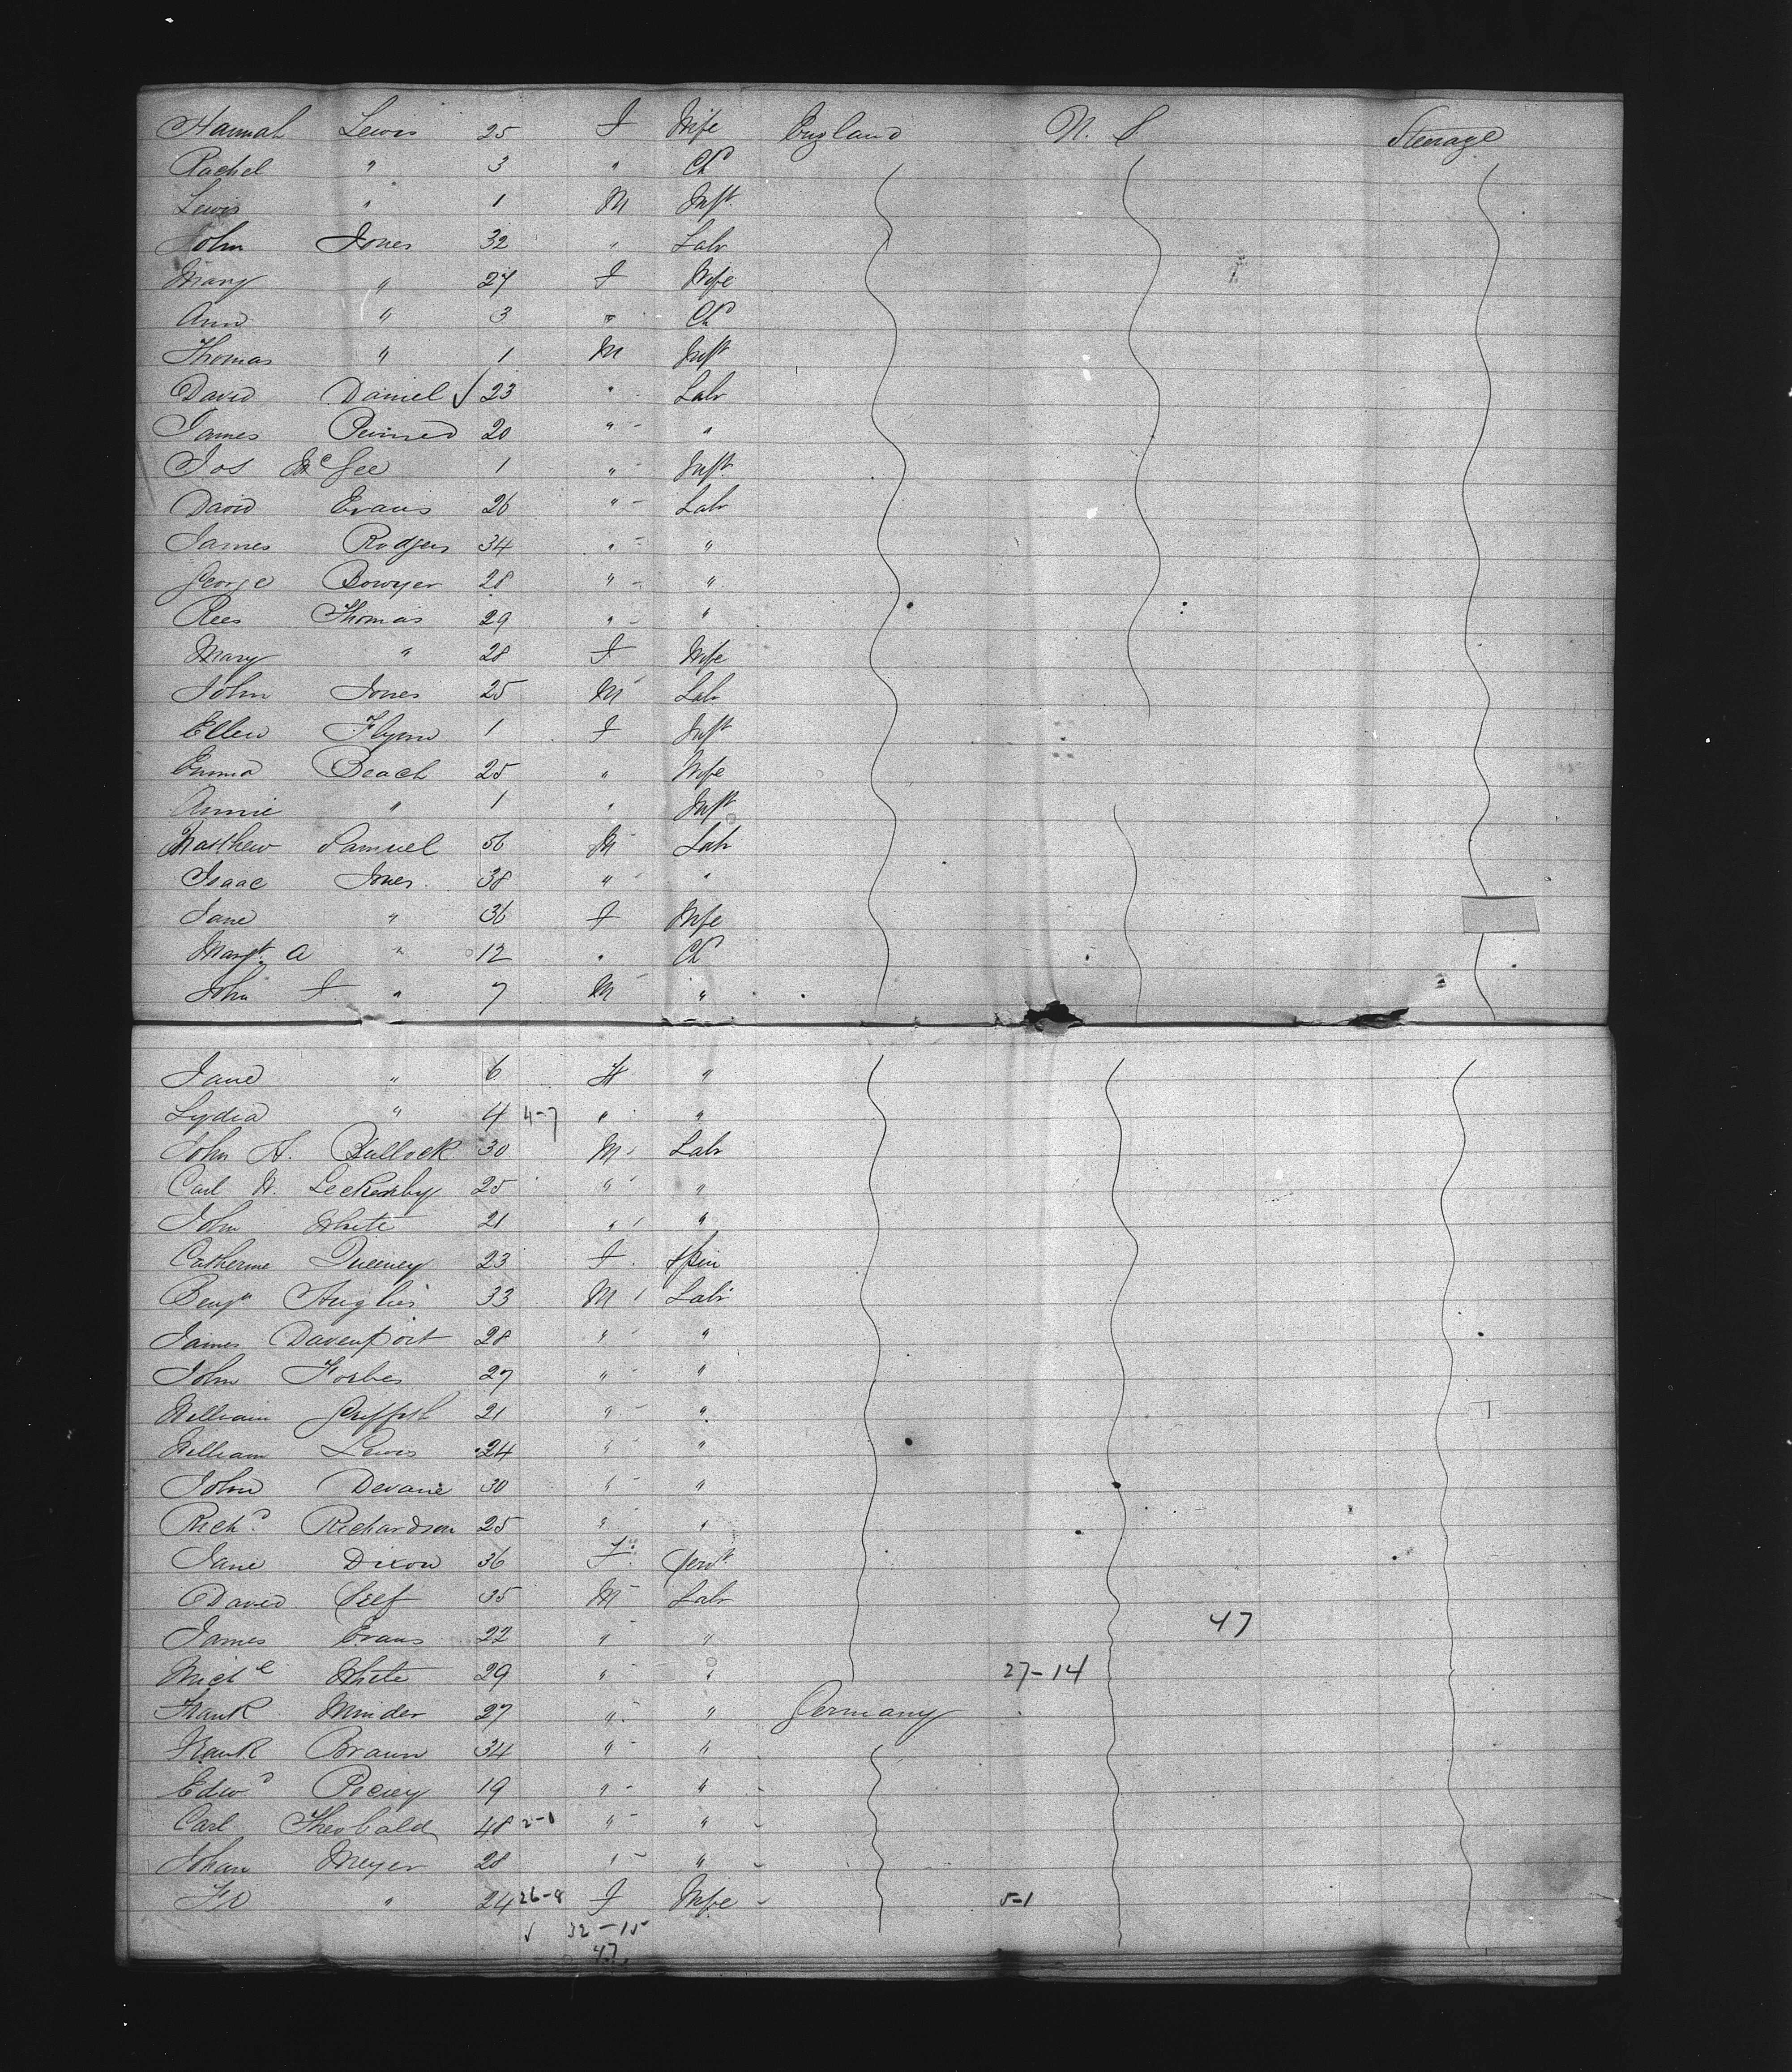 Hannah Lewis 25 F Wife England U. S Steerage
Rachel " 3 " Chd
Lewis " 1 M Inft
John Jones 32 " Labr
Mary " 27 F Wife
Ann " 3 " Chd
Thomas " 1 M Inft
David Daniel √ 23 " Labr
James 20 " "
Jos McGee 1 " Inft
David Evans 26 " Labr
James Rodgers 34 " "
George Bowyer 28 " "
Rees Thomas 29 " "
Mary " 28 F Wife
John Jones 25 M Labr
Ellen Flynn 1 F Inft
Emma Beach 25 " Wife
Annie " 1 " Inft
Matthew Samuel 56 M Labr
Isaac Jones 38 " "
Jane " 36 F Wife
Margt. A " 12 " Chd
John F " 7 M "
Jane " 6 F "
Lydia " 4 4-7 " "
John H. Bullock 30 M Labr
Carl H. Leckenby 25 " "
John White 21 " "
Catherine 23 F Spin
Benjn Hughes 33 M Labr
James Davenport 28 " "
John Forbes 27 " "
William Griffith 21 " "
William Lewis 24 " "
John Devane 30 " "
Richd. Richardson 25 " "
Jane Dixon 36 F Servt
David Self 35 M Labr
James Evans 22 " " 47
Michl White 29 " " 27-14
Frank Minder 27 " " Germany
Frank Braun 34 " "
Edwd 19 " "
Carl Theobald 48 2-1 " "
Johan Meyer 28 " "
Fd " 24 26-8 F Wife 5-1
√ 32-15
47